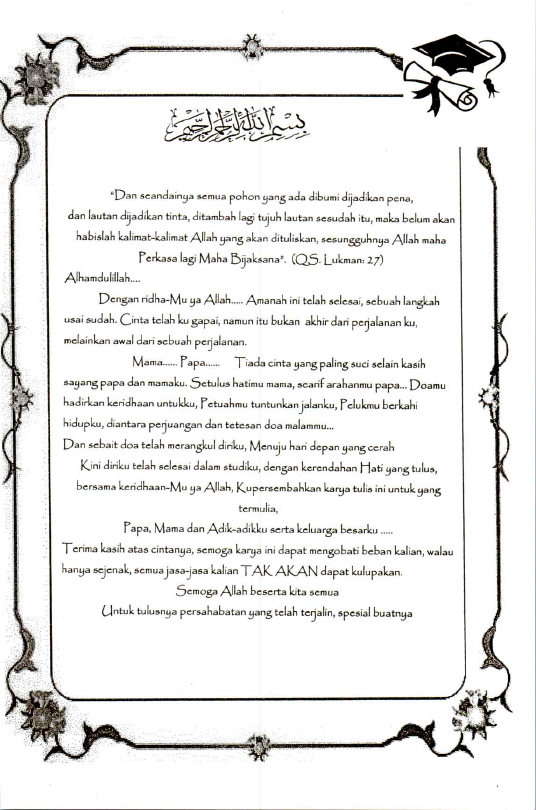 بِسْمِ اللَّهِ الرَّحْمَنِ الرَّحِيمِ
"Dan seandainya semua pohon yang ada dibumi dijadikan pena,
dan lautan dijadikan tinta, ditambah lagi tujuh lautan sesudah itu, maka belum akan
habislah kalimat-kalimat Allah yang akan dituliskan, sesungguhnya Allah maha
Perkasa lagi Maha Bijaksana". (QS. Lukman: 27)
Alhamdulillah....
Dengan ridha-Mu ya Allah..... Amanah ini telah selesai, sebuah langkah
usai sudah. Cinta telah ku gapai, namun itu bukan akhir dari perjalanan ku,
melainkan awal dari sebuah perjalanan.
Mama...... Papa...... Tiada cinta yang paling suci selain kasih
sayang papa dan mamaku. Setulus hatimu mama, searif arahanmu papa... Doamu
hadirkan keridhaan untukku, Petuahmu tuntunkan jalanku, Pelukmu berkahi
hidupku, diantara perjuangan dan tetesan doa malammu...
Dan sebait doa telah merangkul diriku, Menuju hari depan yang cerah
Kini diriku telah selesai dalam studiku, dengan kerendahan Hati yang tulus,
bersama keridhaan-Mu ya Allah, Kupersembahkan karya tulis ini untuk yang
termulia,
Papa, Mama dan Adik-adikku serta keluarga besarku .....
Terima kasih atas cintanya, semoga karya ini dapat mengobati beban kalian, walau
hanya sejenak, semua jasa-jasa kalian TAK AKAN dapat kulupakan.
Semoga Allah beserta kita semua
Untuk tulusnya persahabatan yang telah terjalin, spesial buatnya